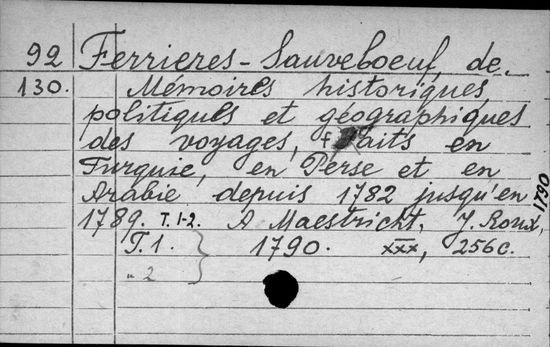 92 Ferrieres-Sauveboeuf, de.
130. Mémoires historiques
politiques et géographiques
des voyages, faits en
Turquie, en Perse et en
Arabie depuis 1782 jusqu'en
1789. T. 1-2. A Maestricht, J. Roux, 1790
T. 1. } 1790. xxx, 256c.
" 2